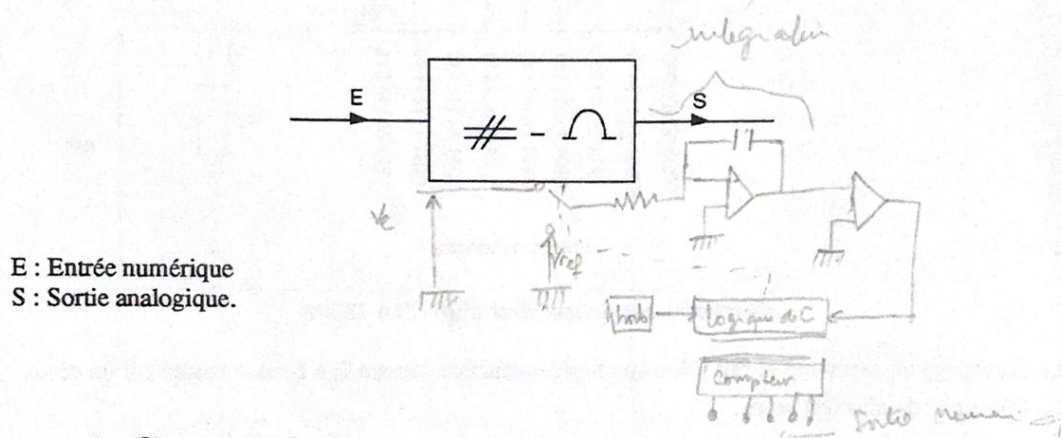 integration
E
S
Ve
Vref
E : Entrée numérique
S : Sortie analogique.
Logique de C
Compteur
Sortie